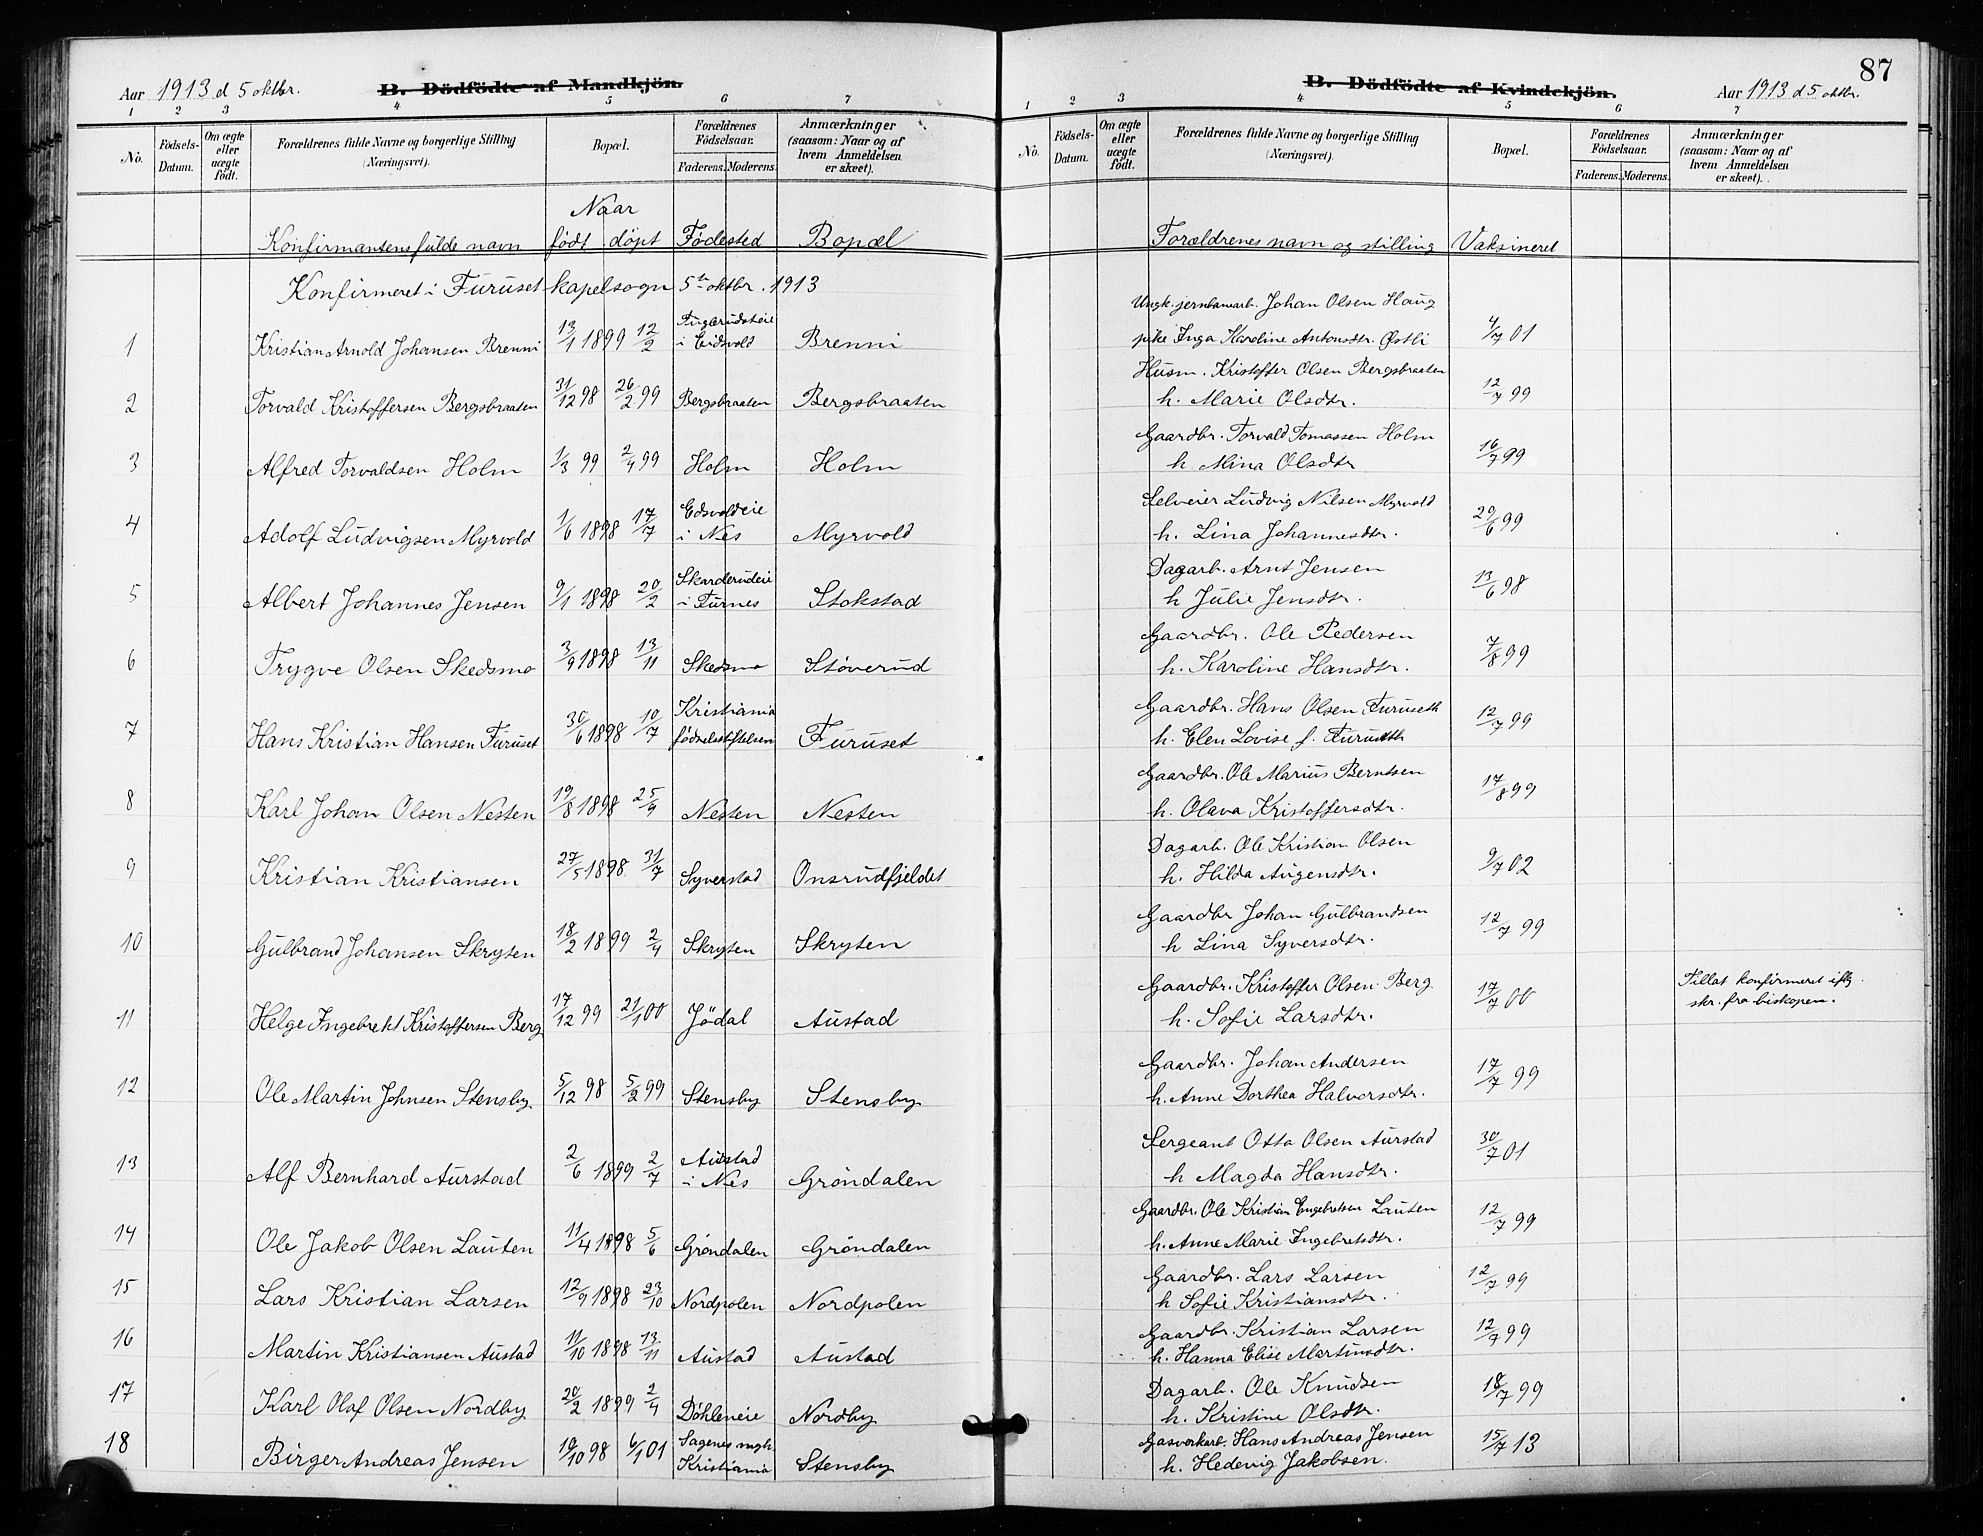 Aar 1913 d 5 oktbr. B. Dödfödte af Mandkjön.
1 2 3 4 5 6 7
No. Födsels-Datum. Om ægte eller uægte födt. Forældrenes fulde Navne og borgerlige Stilling (Næringsvei). Bopæl. Forældrenes Födselsaar. Faderens. Moderens. Anmærkninger (saasom: Naar og af hvem Anmeldelsen er skeet).
Naar
Konfirmantens fulde navn født døpt Fødested Bopæl
Konfirmeret i Furuset kapelsogn 5te oktbr. 1913
1 Kristian Arnold Johansen Brenni 13/1 1899 12/2 Fuglerudseie i Eidsvold Brenni
2 Torvald Kristoffersen Bergsbraaten 31/12 98 26/2 99 Bergsbraaten Bergsbraaten
3 Alfred Torvaldsen Holm 1/3 99 2/4 99 Holm Holm
4 Adolf Ludvigsen Myrvold 1/6 1898 17/7 Edsvoldeie i Nes Myrvold
5 Albert Johannes Jensen 9/1 1898 20/2 Skarderudeie i Furnes Stokstad
6 Trygve Olsen Skedsmo 3/9 1898 13/11 Skedsmo Støverud
7 Hans Kristian Hansen Furuset 30/6 1898 10/7 Kristiania fødselsstiftelsen Furuset
8 Karl Johan Olsen Nesten 19/8 1898 25/9 Nesten Nesten
9 Kristian Kristiansen 27/5 1898 31/7 Syverstad Onsrudfjeldet
10 Gulbrand Johansen Skrysten 18/2 1899 2/4 Skrysten Skrysten
11 Helge Ingebrekt Kristoffersen Berg 17/12 99 21/1 00 Jödal Austad
12 Ole Martin Johnsen Stensby 5/12 98 5/2 99 Stensby Stensby
13 Alf Bernhard Aurstad 2/6 1899 2/7 Austad i Nes Gröndalen
14 Ole Jakob Olsen Lauten 11/4 1898 5/6 Gröndalen Gröndalen
15 Lars Kristian Larsen 12/9 1898 23/10 Nordpolen Nordpolen
16 Martin Kristiansen Austad 11/10 1898 13/11 Austad Austad
17 Karl Olaf Olsen Nordby 20/2 1899 2/4 Döhleneie Nordby
18 Birger Andreas Jensen 19/10 98 6/1 01 Sagenes mgh. Kristiania Stensby
87
B. Dödfödte af Kvindekjön. Aar 1913 d 5 oktbr.
1 2 3 4 5 6 7
No. Födsels-Datum. Om ægte eller uægte födt. Forældrenes fulde Navne og borgerlige Stilling (Næringsvei). Bopæl. Forældrenes Födselsaar. Faderens. Moderens. Anmærkninger (saasom: Naar og af hvem Anmeldelsen er skeet).
Forældrenes navn og stilling Vaksineret
Ungk. jernbanearb. Johan Olsen Haug
pike Inga Karoline Antonsdtr. Østli 4/7 01
Husm. Kristoffer Olsen Bergsbraaten
h. Marie Olsdtr. 12/7 99
Gaardbr. Torvald Tomassen Holm
h. Mina Olsdtr 16/7 99
Selveier Ludvig Nilsen Myrvold
h. Lina Johannesdtr. 29/6 99
Dagarb. Arnt Jensen
h Julie Jensdtr. 13/6 98
Gaardbr. Ole Pedersen
h. Karoline Hansdtr. 7/8 99
Gaardbr. Hans Olsen Furuseth
h. Elen Lovise f. Furuseth 12/7 99
Gaardbr. Ole Marius Berntsen
h. Olava Kristoffersdtr. 17/8 99
Dagarb. Ole Kristian Olsen
h. Hilda Augensdtr. 9/7 02
Gaardbr Johan Gulbrandsen
h Lina Syversdtr. 12/7 99
Gaardbr. Kristoffer Olsen Berg 17/7 00 Tillat konfirmeret iflg.
h. Sofie Larsdtr. skr. fra biskopen.
Gaardbr. Johan Andersen
h. Anne Dorthea Halvorsdtr. 17/7 99
Sergeant Otto Olsen Aurstad
h Magda Hansdtr. 30/7 01
Gaardbr. Ole Kristian Engebretsen Lauten
h. Anne Marie Ingebretsdtr. 12/7 99
Gaardbr. Lars Larsen
h Sofie Kristiansdtr. 12/7 99
Gaardbr. Kristian Larsen
h. Hanna Elise Martinusdtr. 12/7 99
Dagarb. Ole Knudsen
h. Kristine Olsdtr. 18/7 99
Gasverkarb. Hans Andreas Jensen
h. Hedevig Jakobsen. 15/7 13